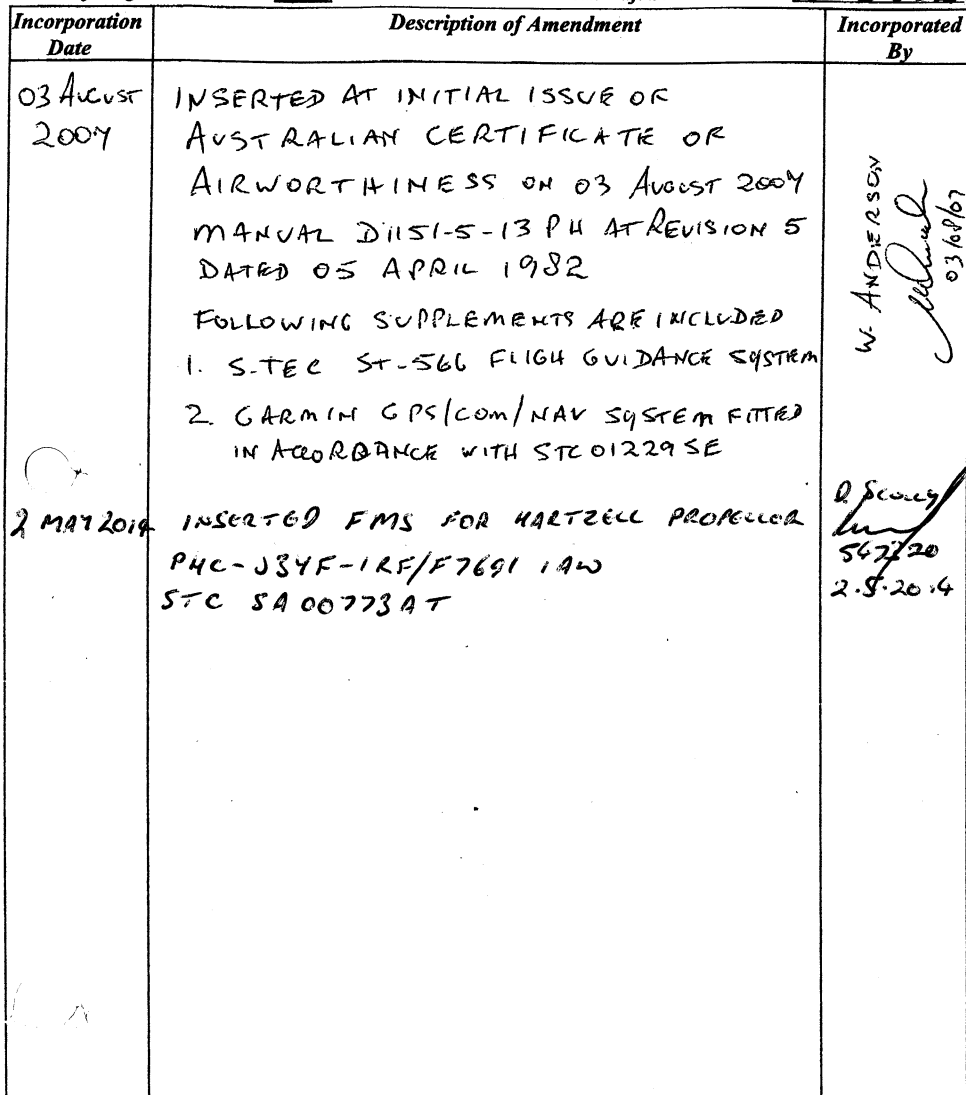 Incorporation Date
Description of Amendment
Incorporated By
03 AUGUST 2007
INSERTED AT INITIAL ISSUE OF
AUSTRALIAN CERTIFICATE OF
AIRWORTHINESS ON 03 AUGUST 2007
MANUAL D1151-5-13PH AT REVISION 5
DATED 05 APRIL 1982
FOLLOWING SUPPLEMENTS ARE INCLUDED
1. S-TEC ST-566 FLIGH GUIDANCE SYSTEM
2. GARMIN GPS/COM/NAV SYSTEM FITTED
IN ACCORDANCE WITH STC 01229SE
W. ANDERSON
03/08/07
2 MAY 2014
INSERTED FMS FOR HARTZELL PROPELLOR
PHC-J3YF-1RF/F7691 IAW
STC SA00773AT
D. Scully
2.5.2014